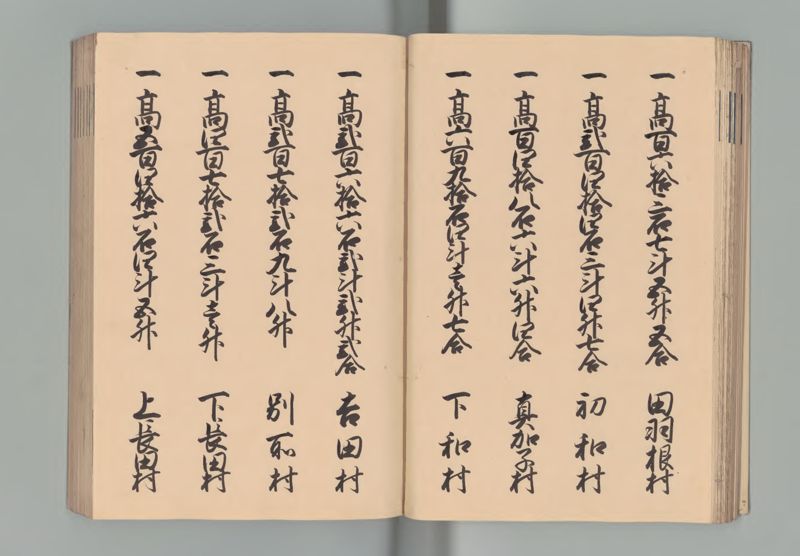 一髙百六拾三石七斗五升五合 田羽根村
一髙弐百四拾四石三斗四升七合 初和村
一髙百四拾八石六斗六升四合 真加子村
一髙六百九拾石四斗壱升七合 下和村
一髙弐百六拾六石弐斗弐升弐合 吉田村
一髙弐百七拾弐石九斗八升 別所村
一髙四百七拾弐石三斗壱升 下長田村
一髙五百四拾六石四斗五升 上長田村